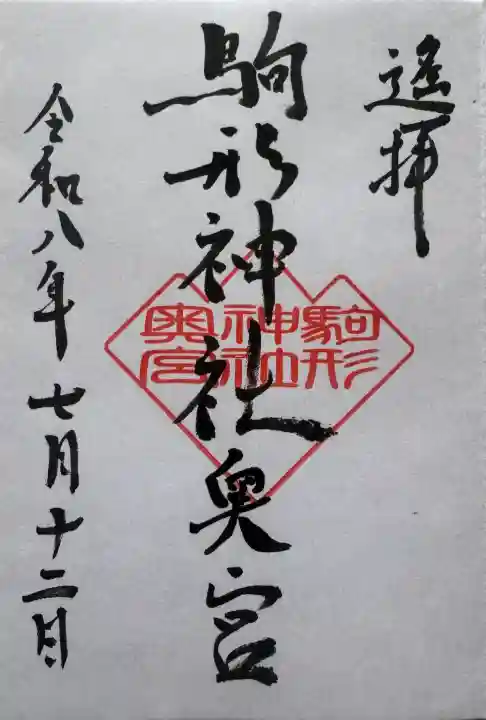 遙拝
駒形神社奥宮
駒形
神社
奥宮
令和八年七月十二日